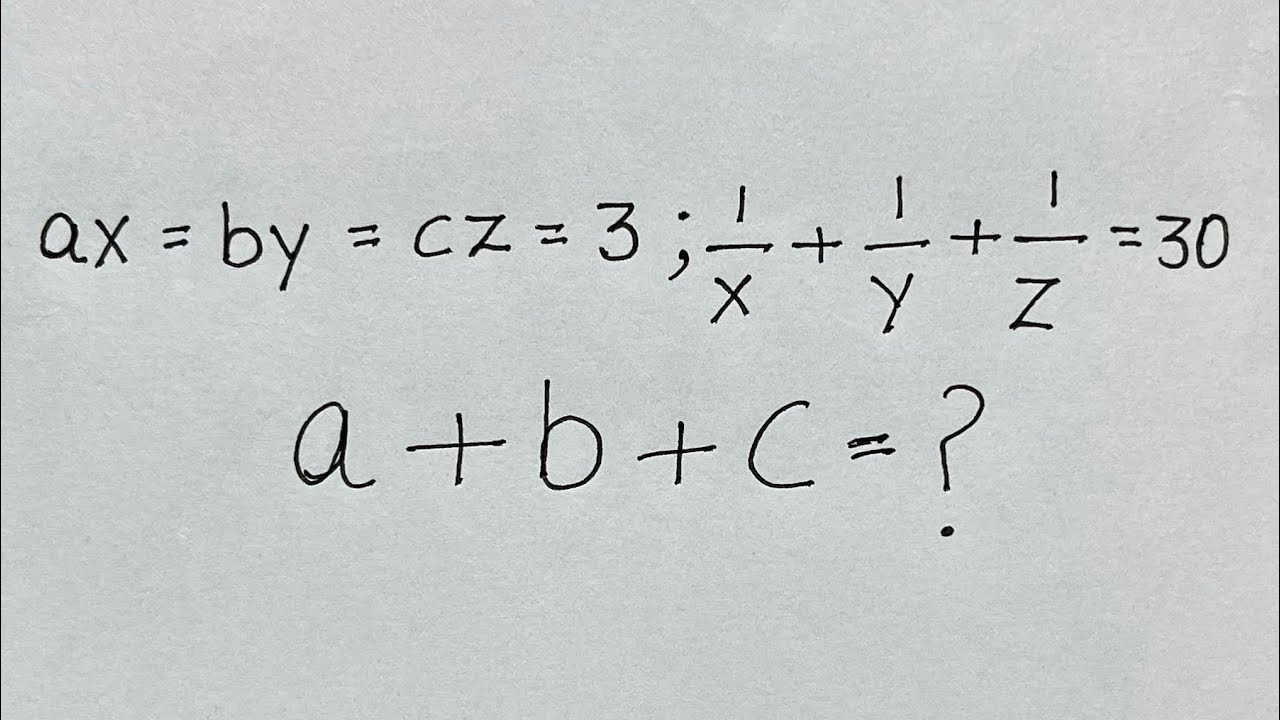 ax = by = cz = 3 ; 1/x + 1/y + 1/z = 30
a + b + c = ?